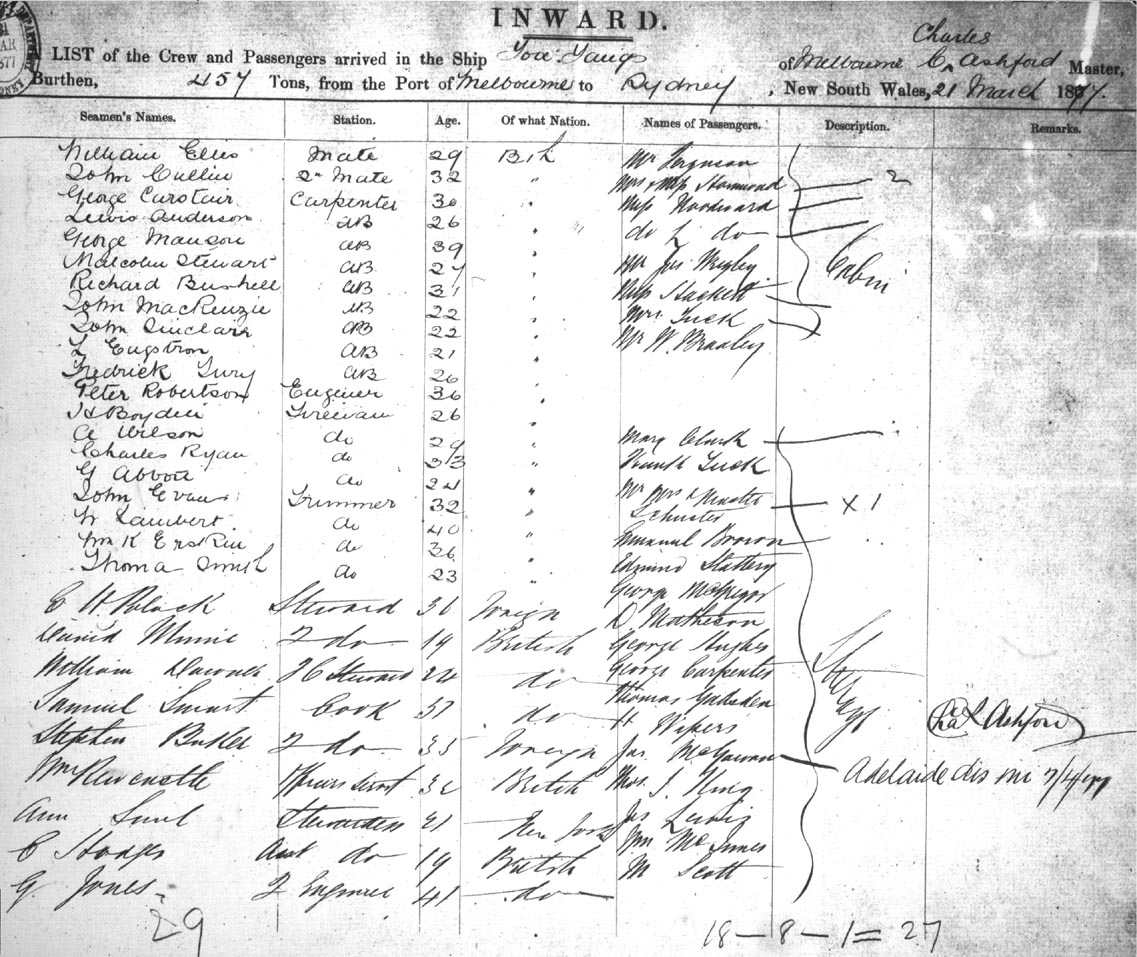 INWARD.
A LIST of the Crew and Passengers arrived in the Ship You Yangs of Melbourne C. Ashford Master,
Charles
Burthen, 457 Tons, from the Port of Melbourne to Sydney, New South Wales, 21 March 1877.
Seamen's Names. Station. Age. Of what Nation. Names of Passengers. Description. Remarks.
William Ellis Mate 29 Btsh Mr
John Cullin 2nd Mate 32 " Mrs & Miss Hammond 2
George Carstair Carpenter 30 " Miss Woodward
Lewis Anderson AB 26 " do & do
George Manson AB 39 "
Malcolm Stewart AB 27 " Mr Jas Wrigley Cabin
Richard Bushell AB 31 " Miss Hackett
John MacKenzie AB 22 " Mrs Tuck
John Sinclair AB 22 " Mr W. Bradley
L Engstron AB 21 "
Fredrick Tury AB 26 "
Peter Robertson Enginer 36 "
H Boydin Fireman 26 "
A Wilson do 29 " Mary Clark
Charles Ryan do 33 " Tuck
G Abbott do 24 " Mr Mrs & Master
John Evans Trimmer 32 " Schuster X 1
W Lambert do 40 " Emanuel Brown
Wm K Erskin do 36 " Edmund Slattery
Thoma Smith do 23 " George McGregor
C H Black Steward 36 Foreign D Matheson
David Minnie 2 do 19 British George Hughes
William 2 C Steward 22 do George Carpenter Steerage
Samuel Smart Cook 37 do Thomas Gadsden
H Vipers Chas Ashford
Stephen Butler 2 do 35 Foreign Jas. McGowan
Wm Ravenstle 32 British Mrs. J. King Adelaide dis 7/4/77
Ann Stewardess 21 Jas Lewis
C Hodges Asst do 19 British Wm McInnes
G Jones 2 Engineer 41 do M Scott
29 18 – 8 – 1 = 27